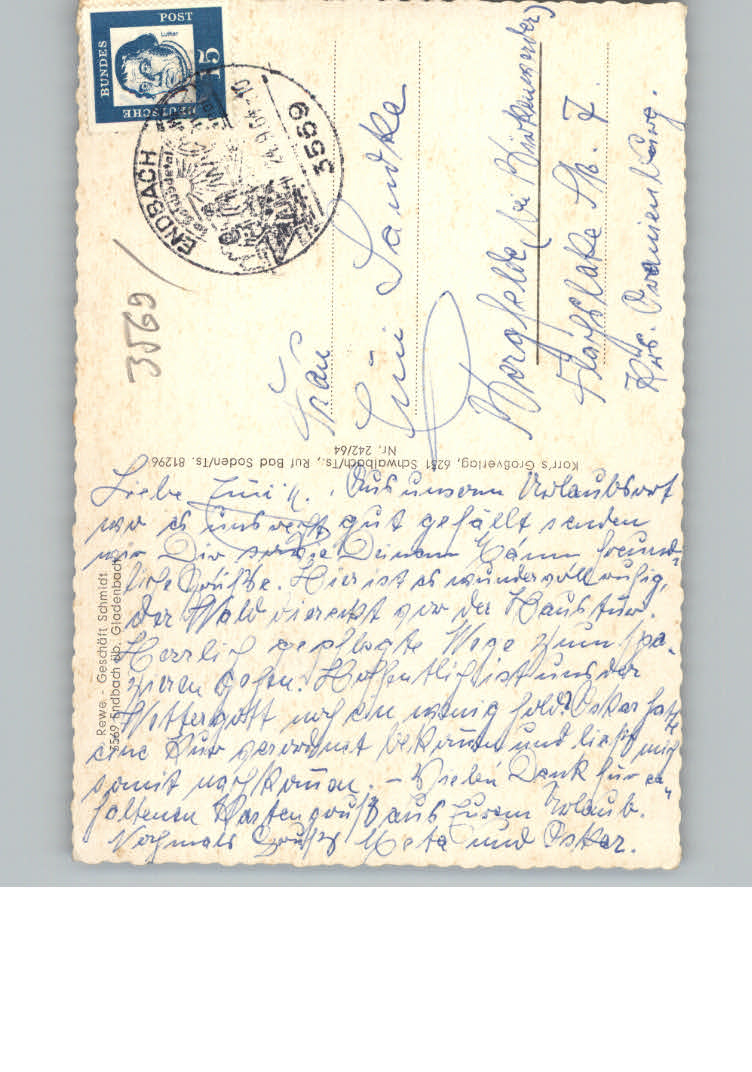 DEUTSCHE
BUNDES
POST
Luther
15
ENDBACH
24.9.64-10
3569
3569
Frau
Lini Sandke
Borgfelde (bei Birkenwerder)
Flachslake Str. 7
Krs. Oranienburg.
Korr's Großverlag, 6231 Schwalbach/Ts., Ruf Bad Soden/Ts. 81296
Nr. 242/64
Rewe - Geschäft Schmidt
3569 Endbach üb. Gladenbach
Liebe Lini! Aus unserem Urlaubsort
wo es uns recht gut gefällt senden
wir Dir sowie Deinem Mann freund-
liche Grüße. Hier ist es wundervoll ruhig,
der Wald direckt vor der Haustür.
Herrlich gepflegte Wege zum spa-
zieren gehen. Hoffentlich ist uns der
Wettergott noch ein wenig hold? Oskar hatte
eine Kur verordnet bekommen und ließ mich
somit nachkommen. - Vielen Dank für er-
haltenen Kartengruß aus Eurem Urlaub.
Nochmals Gruß Meta und Oskar.